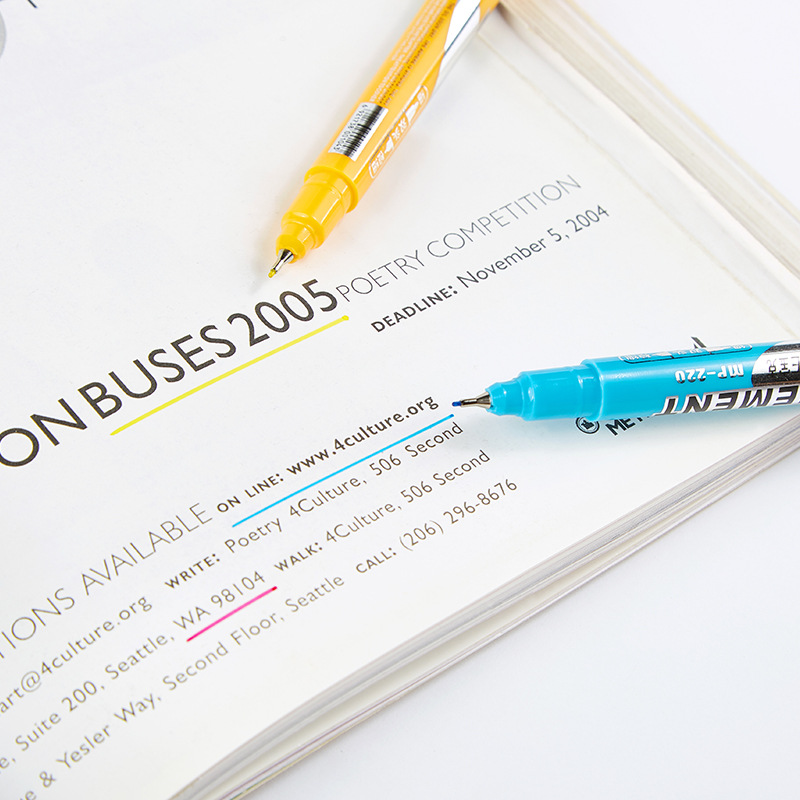 ON BUSES 2005 POETRY COMPETITION
DEADLINE: November 5, 2004
TIONS AVAILABLE ON LINE: www.4culture.org
art@4culture.org WRITE: Poetry 4Culture, 506 Second
, Suite 200, Seattle, WA 98104 WALK: 4Culture, 506 Second
& Yesler Way, Second Floor, Seattle CALL: (206) 296-8676
MP-220
EMENT
MET